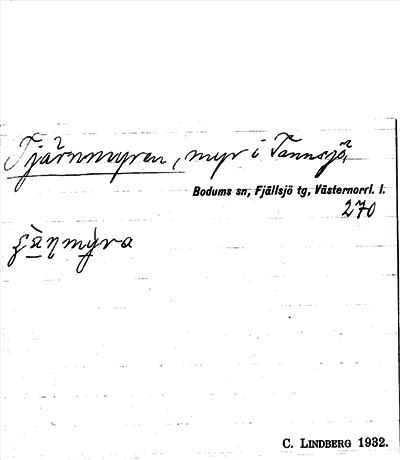 Tjärnmyren, myr i Tannsjö,
Bodums sn, Fjällsjö tg, Västernorrl. l.
270
C. LINDBERG 1932.